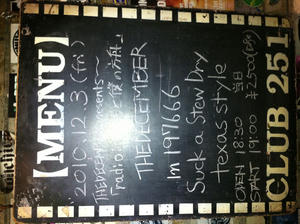 【MENU】
2010.12.3 (fri)
THEDECEMBER presents〜
THEDECEMBER
Im197666
Suck a Stew Dry
texas style
OPEN 18:30 当日
START 19:00 ¥2500
CLUB 251